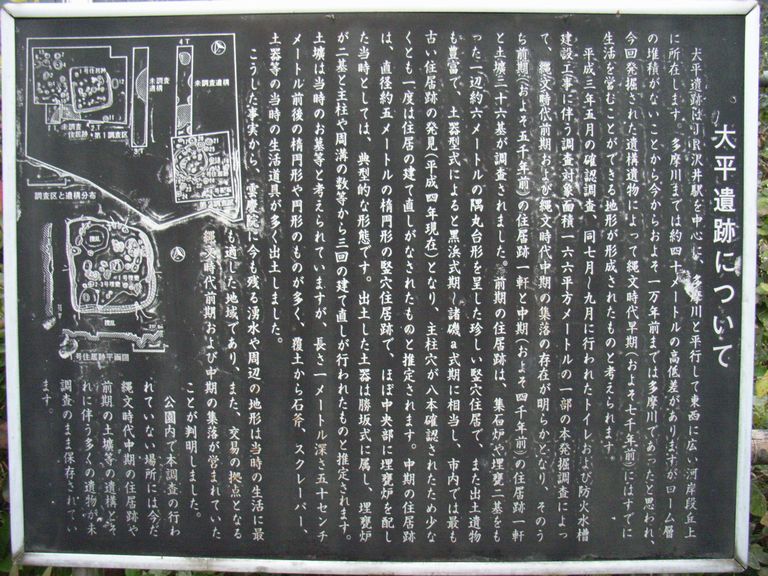 大平遺跡について
大平遺跡はJR沢井駅を中心に、多摩川と平行して東西に広い河岸段丘上
に所在します。多摩川までは約四十メートルの高低差がありますがローム層
の堆積がないことから今からおよそ一万年前までは多摩川であったと思われ、
今回発掘された遺構遺物によって縄文時代早期(およそ七千年前)にはすでに
生活を営むことができる地形が形成されたものと考えられます。
平成三年五月の確認調査、同七月~九月に行われたトイレおよび防火水槽
建設工事に伴う調査対象面積一六六平方メートルの一部の本発掘調査によっ
て、縄文時代前期および縄文時代中期の集落の存在が明らかとなり、そのう
ち前期(およそ五千年前)の住居跡一軒と中期(およそ四千年前)の住居跡一軒
と土壙三十六基が調査されました。前期の住居跡は、集石炉や埋甕二基をも
った一辺約六メートルの隅丸台形を呈した珍しい竪穴住居で、また出土遺物
も豊富で、土器型式によると黒浜式期~諸磯a式期に相当し、市内では最も
古い住居跡の発見(平成四年現在)となり、主柱穴が八本確認されたため少な
くとも一度は住居の建て直しがなされたものと推定されます。中期の住居跡
は、直径約五メートルの楕円形の竪穴住居跡で、ほぼ中央部に埋甕炉を配し
た当時としては、典型的な形態です。出土した土器は勝坂式に属し、埋甕炉
が二基と主柱や周溝の数等から三回の建て直しが行われたものと推定されます。
土壙は当時のお墓等と考えられていますが、長さ一メートル深さ五十センチ
メートル前後の楕円形や円形のものが多く、覆土から石斧、スクレーパー、
土器等の当時の生活道具が多く出土しました。
こうした事実から、雲慶院に今も残る湧水や周辺の地形は当時の生活に最
も適した地域であり、また、交易の拠点となる
縄文時代前期および中期の集落が営まれていた
ことが判明しました。
公園内で本調査の行わ
れていない場所には今だ
縄文時代中期の住居跡や
前期の土壙等の遺構とそ
れに伴う多くの遺物が未
調査のまま保存されてい
ます。
4T
未調査遺構
未調査
遺構
1号住居跡
未調査
住居跡
1T
2T
第1調査区
調査区と遺構分布
撹乱
号住居跡平面図